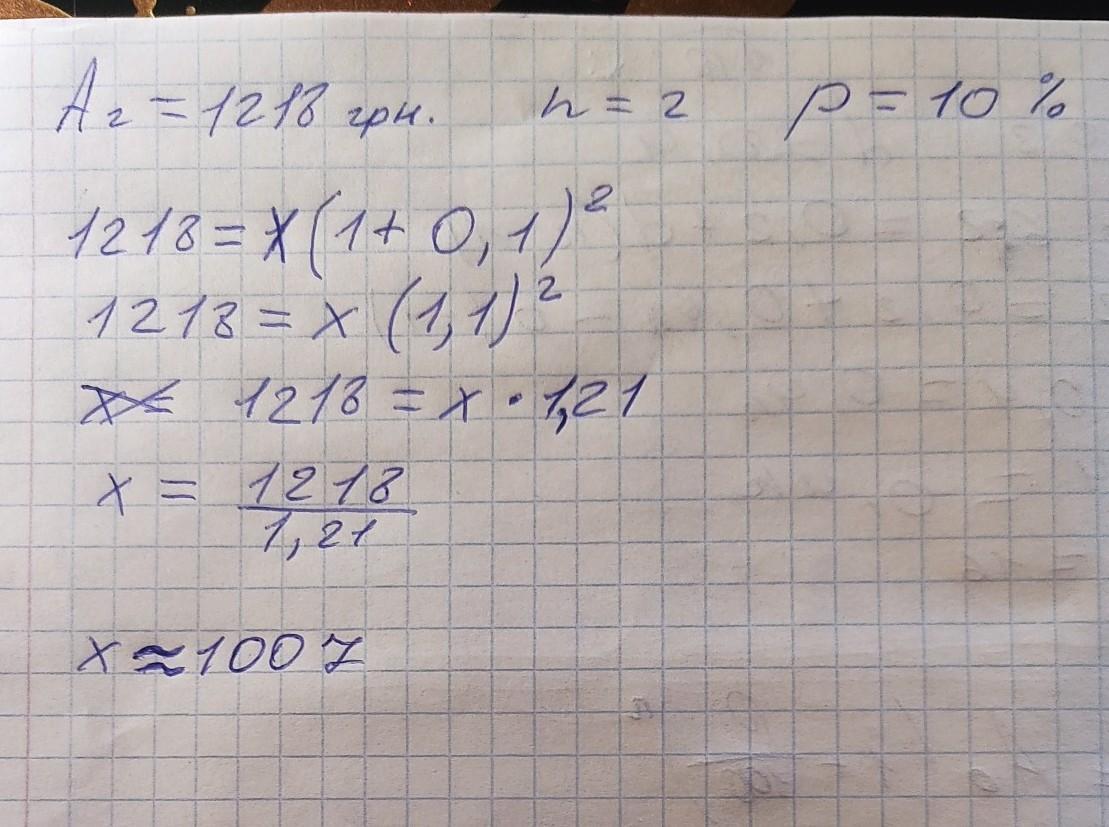 A₂ = 1218 грн. n = 2 p = 10 %
1218 = x(1 + 0,1)²
1218 = x (1,1)²
x= 1218 = x · 1,21
x = 1218/1,21
x ≈ 1007